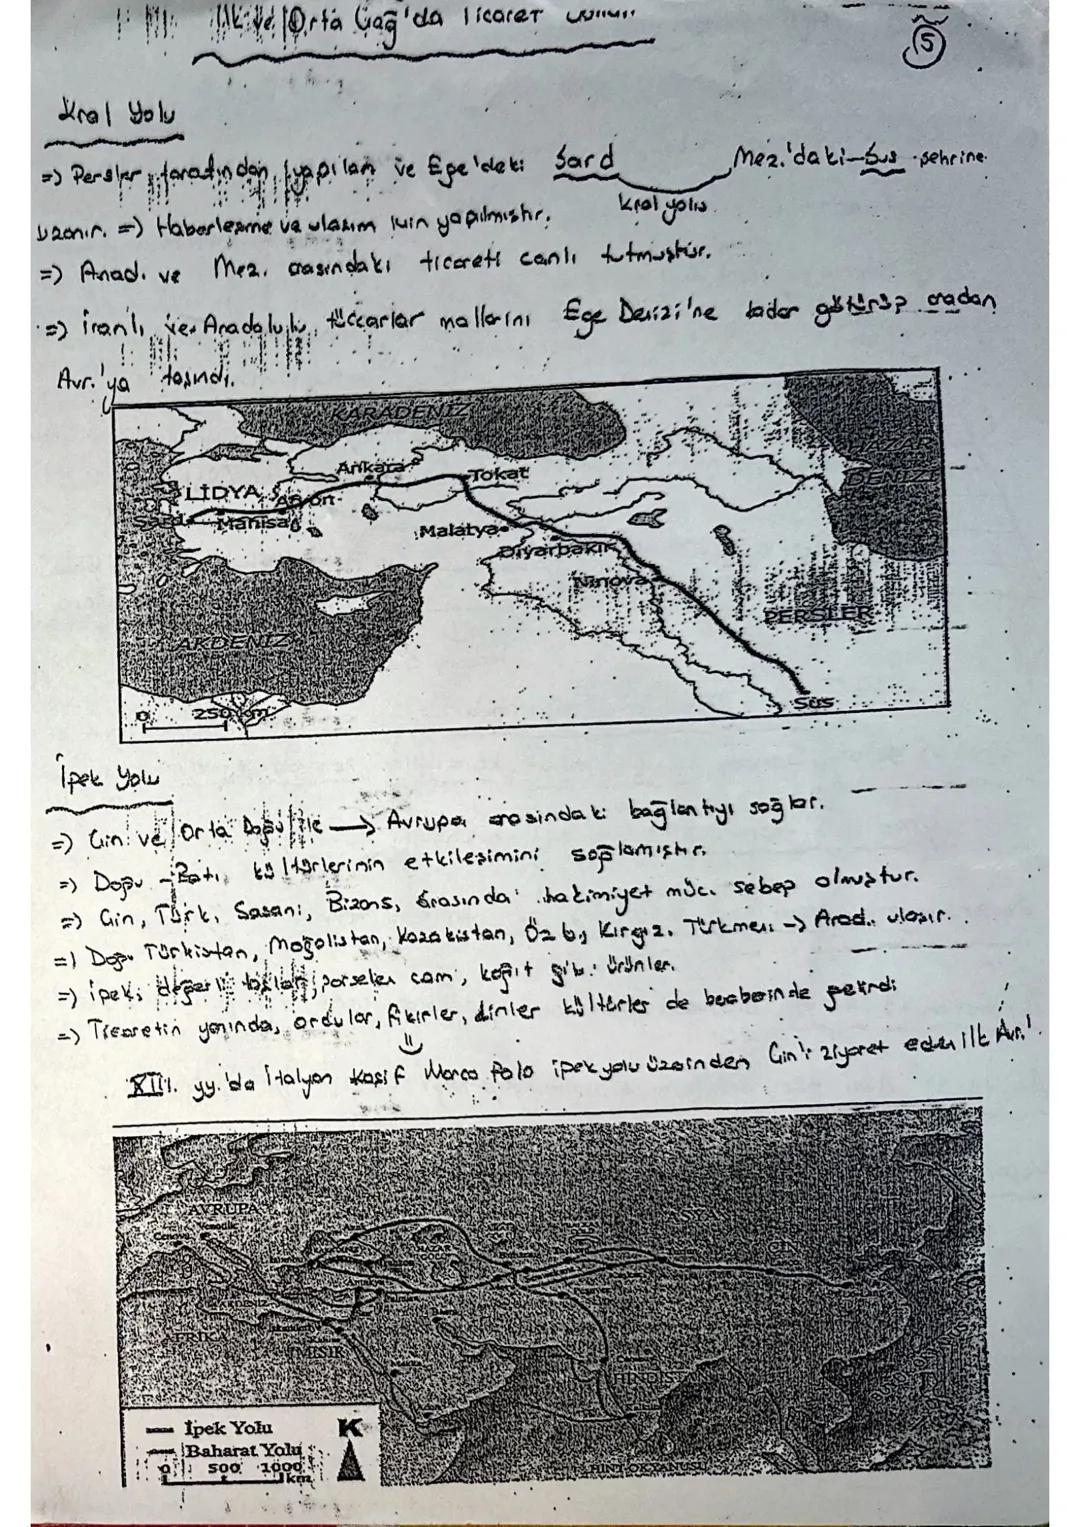 İlk ve Orta Çağ'da Ticaret
5
Kral Yolu
=> Persler tarafından yapılan ve Ege'deki Sard Mez.'daki Sus şehrine
Kral yolu
uzanır. => Haberleşme ve ulaşım için yapılmıştır.
=> Anad. ve Mez. arasındaki ticareti canlı tutmuştur.
=> İranlı ve Anadolulu tüccarlar mallarını Ege Denizi'ne kadar götürüp oradan
Avr.'ya taşındı.
KARADENİZ
HAZAR
DENİZİ
Ankara
Tokat
LİDYA
Afyon
Sard
Manisa
Malatya
Diyarbakır
Ninova
PERSLER
AKDENİZ
Sus
0 250 km
İpek Yolu
=> Çin ve Orta Doğu ile → Avrupa arasındaki bağlantıyı sağlar.
=> Doğu - Batı kültürlerinin etkileşimini sağlamıştır.
=> Çin, Türk, Sasani, Bizans, arasında hakimiyet müc. sebep olmuştur.
=> Doğu Türkistan, Moğolistan, Kazakistan, Özb, Kırgız. Türkmen -> Anad. ulaşır.
=> ipek, değerli taşlar, porselen cam, kağıt gibi ürünler.
=> Ticaretin yanında, ordular, fikirler, dinler kültürler de beraberinde getirdi
XIII. yy.'da İtalyan Kaşif Marco Polo ipek yolu üzerinden Çin'i ziyaret eden ilk Avr.'
AVRUPA
ASYA
HAZAR
ÇİN
AFRİKA
MISIR
HİNDİSTAN
HİNT OKYANUSU
İpek Yolu
Baharat Yolu
K
0 500 1000
km